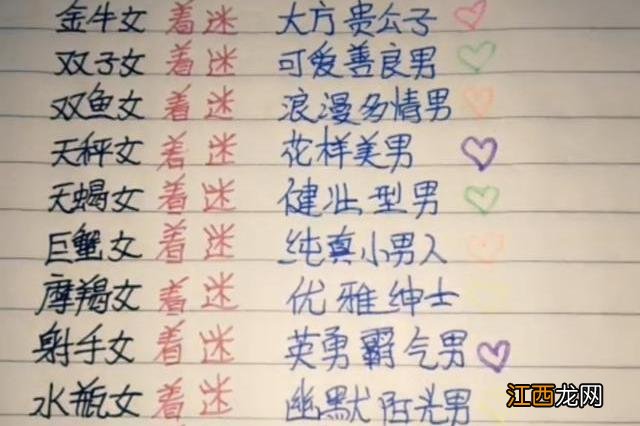 金牛女 着迷 大方贵公子
双子女 着迷 可爱善良男
双鱼女 着迷 浪漫多情男
天秤女 着迷 花样美男
天蝎女 着迷 健壮型男
巨蟹女 着迷 纯真小男人
摩羯女 着迷 优雅绅士
射手女 着迷 英勇霸气男
水瓶女 着迷 幽默阳光男
江西龙网